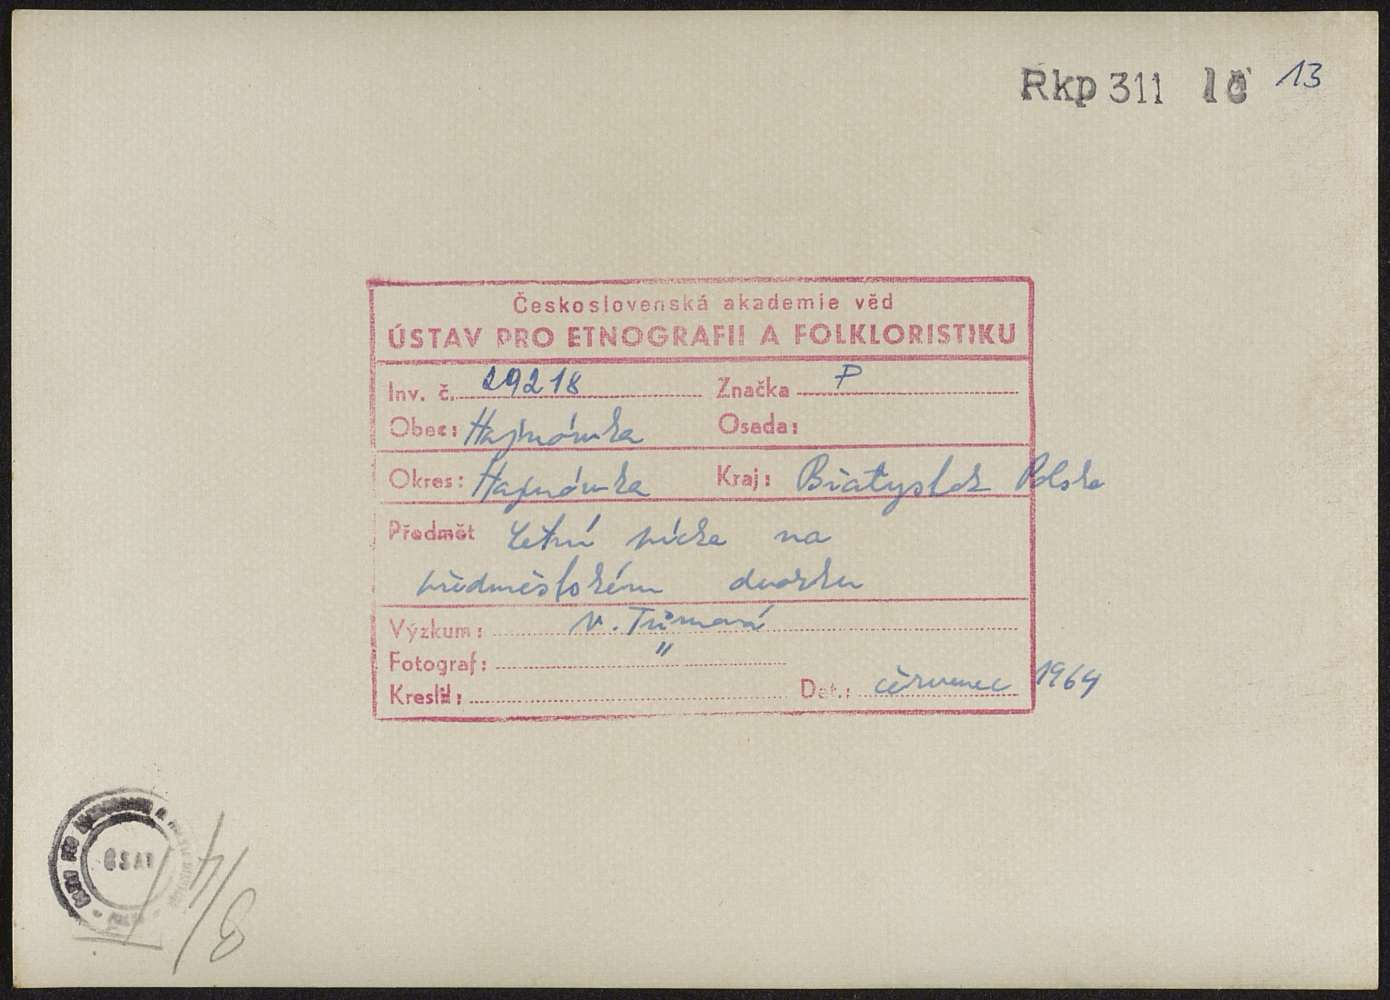 Rkp 311 13
Československá akademie věd
ÚSTAV PRO ETNOGRAFII A FOLKLORISTIKU
Inv. č. 29218 Značka P
Obec: Hajnówka Osada:
Okres: Hajnówka Kraj: Białystok Polsko
Předmět Letní pícka na
předměstském dvorku
Výzkum: V. Tůmová
Fotograf: "
Kreslil:
Dat.: červenec 1964
ČSAV